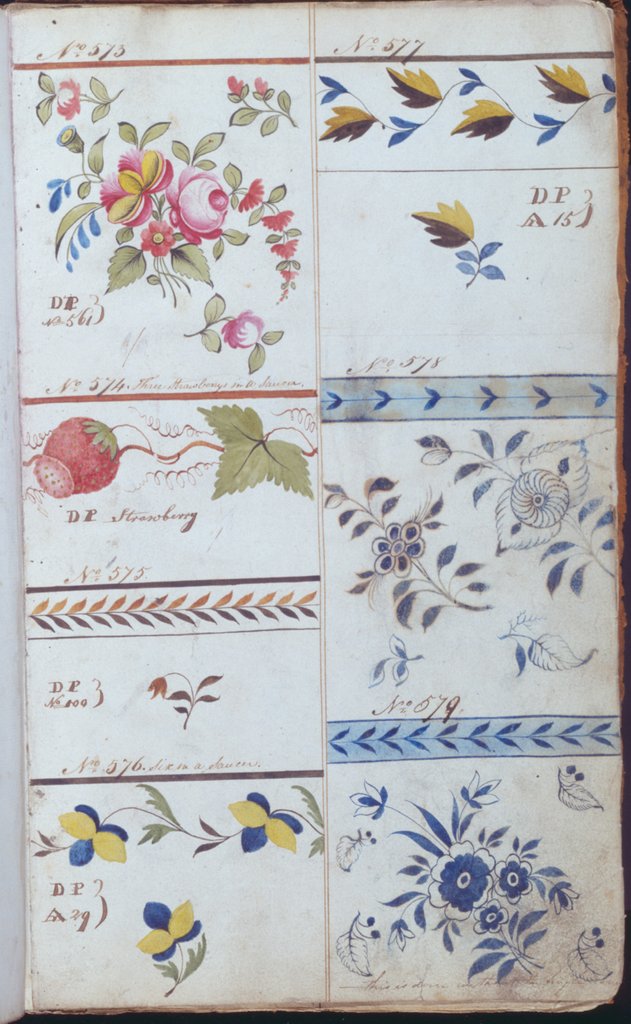 No 573
DP
No 561
No 574. Three strawberrys in a Saucer.
DP Strawberry
No 575.
DP
No 100
No 576. Six in a Saucer.
DP
A 29
No 577
DP
A 15
No 578
No 579
this is done in